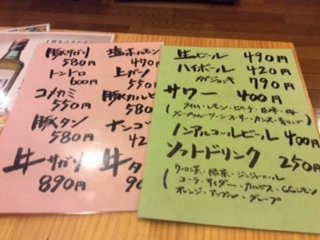 豚サガリ
580円
トントロ
600円
コメカミ
550円
豚タン
580円
牛サガリ
890円
塩ホルモン
470円
上ガツ
550円
豚カルビ
580円
ナンコ
牛タ
生ビール 490円
ハイボール 420円
メガジョッキ 790円
サワー 400円
ノンアルコールビール 400円
ソフトドリンク 250円
ウーロン茶・緑茶・ジンジャーエール
コーラ・サイダー・カルピス・CCレモン
オレンジ・アップル・グレープ